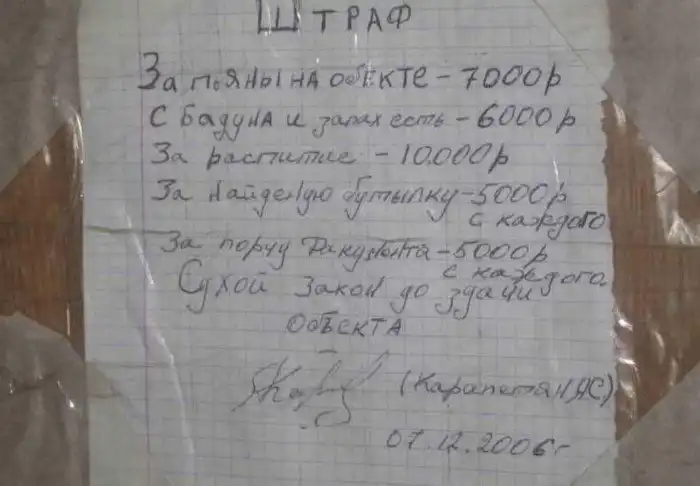 ШТРАФ
За пьяны на обекте - 7000р
С бадуна и запах есть - 6000р
За распитие - 10.000р
За найденую бутылку - 5000р
с каждого
За порчу Дакумента - 5000р
с каждого.
Сухой закон до здачи
ОБЪЕКТА
(Карапетян ЯС)
07.12.2006г